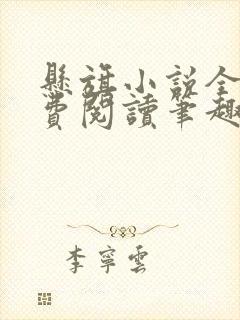 懸旗小說全
費閱讀筆趣
李寧雲